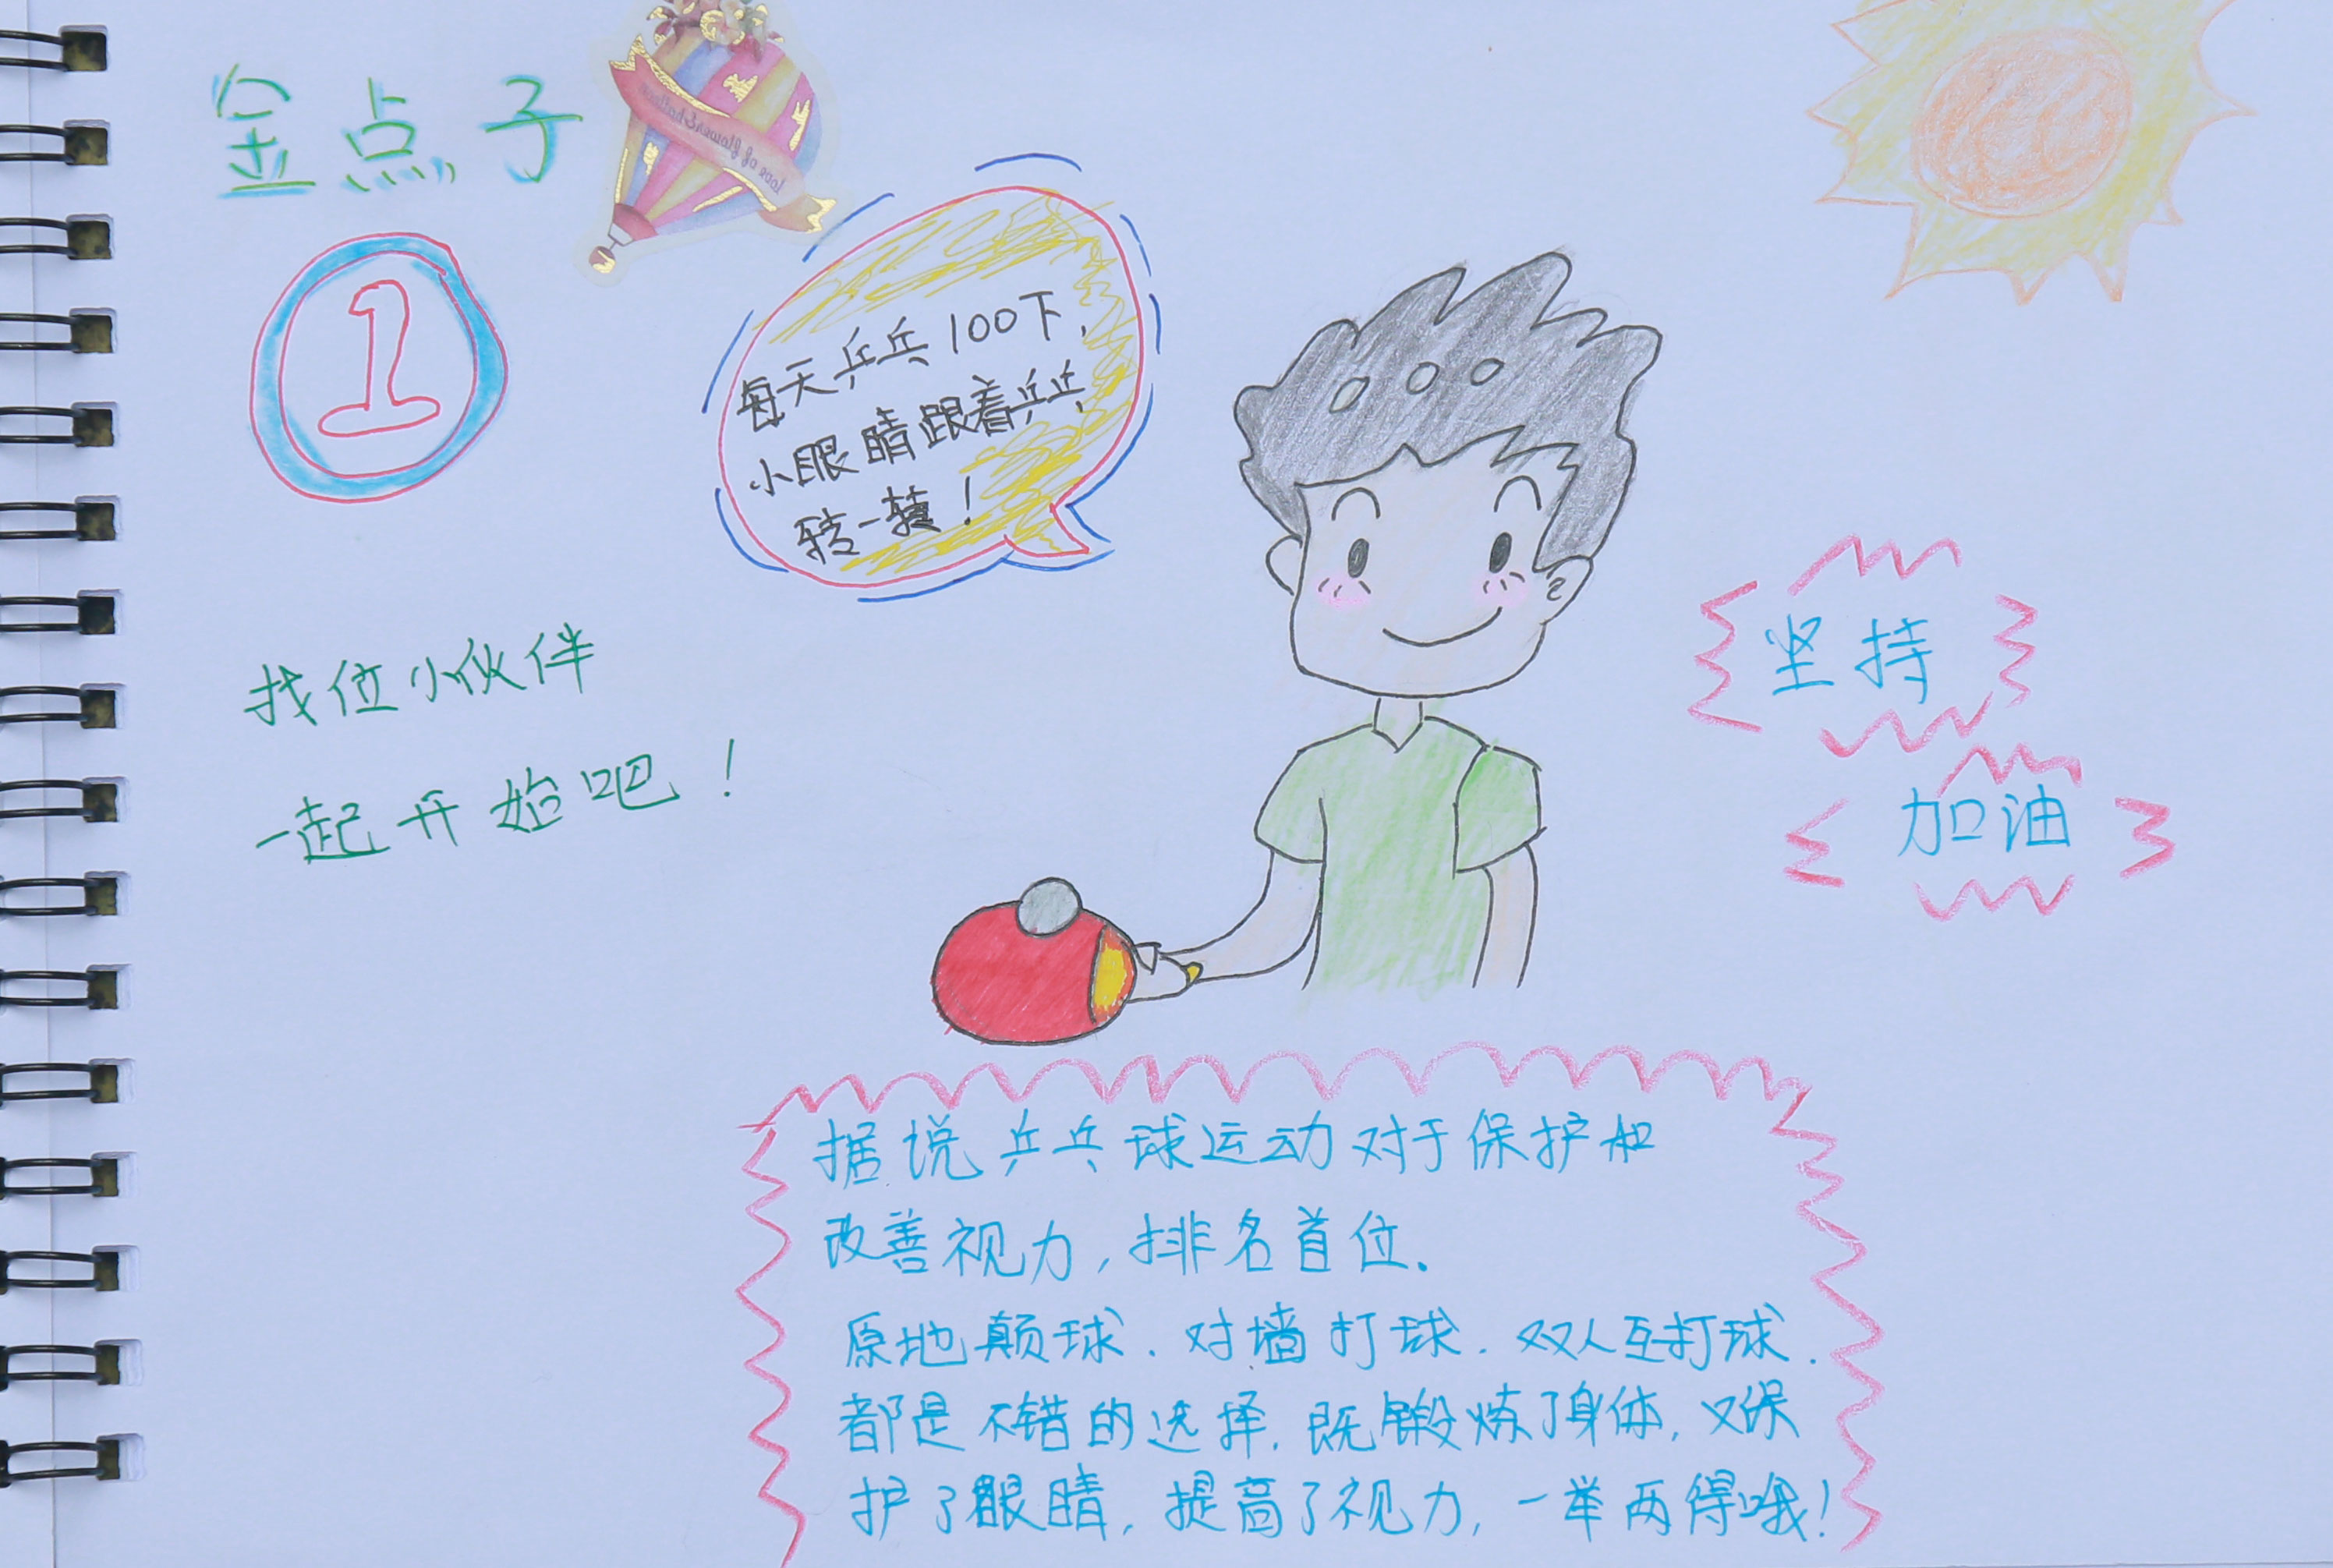 金点子
1
每天乒乓100下,
小眼睛跟着乒乓
转一转!
找位小伙伴
一起开始吧!
坚持
加油
据说乒乓球运动对于保护和
改善视力,排名首位.
原地颠球.对墙打球.双人互打球.
都是不错的选择,既锻炼了身体,又保
护了眼睛,提高了视力,一举两得哦!